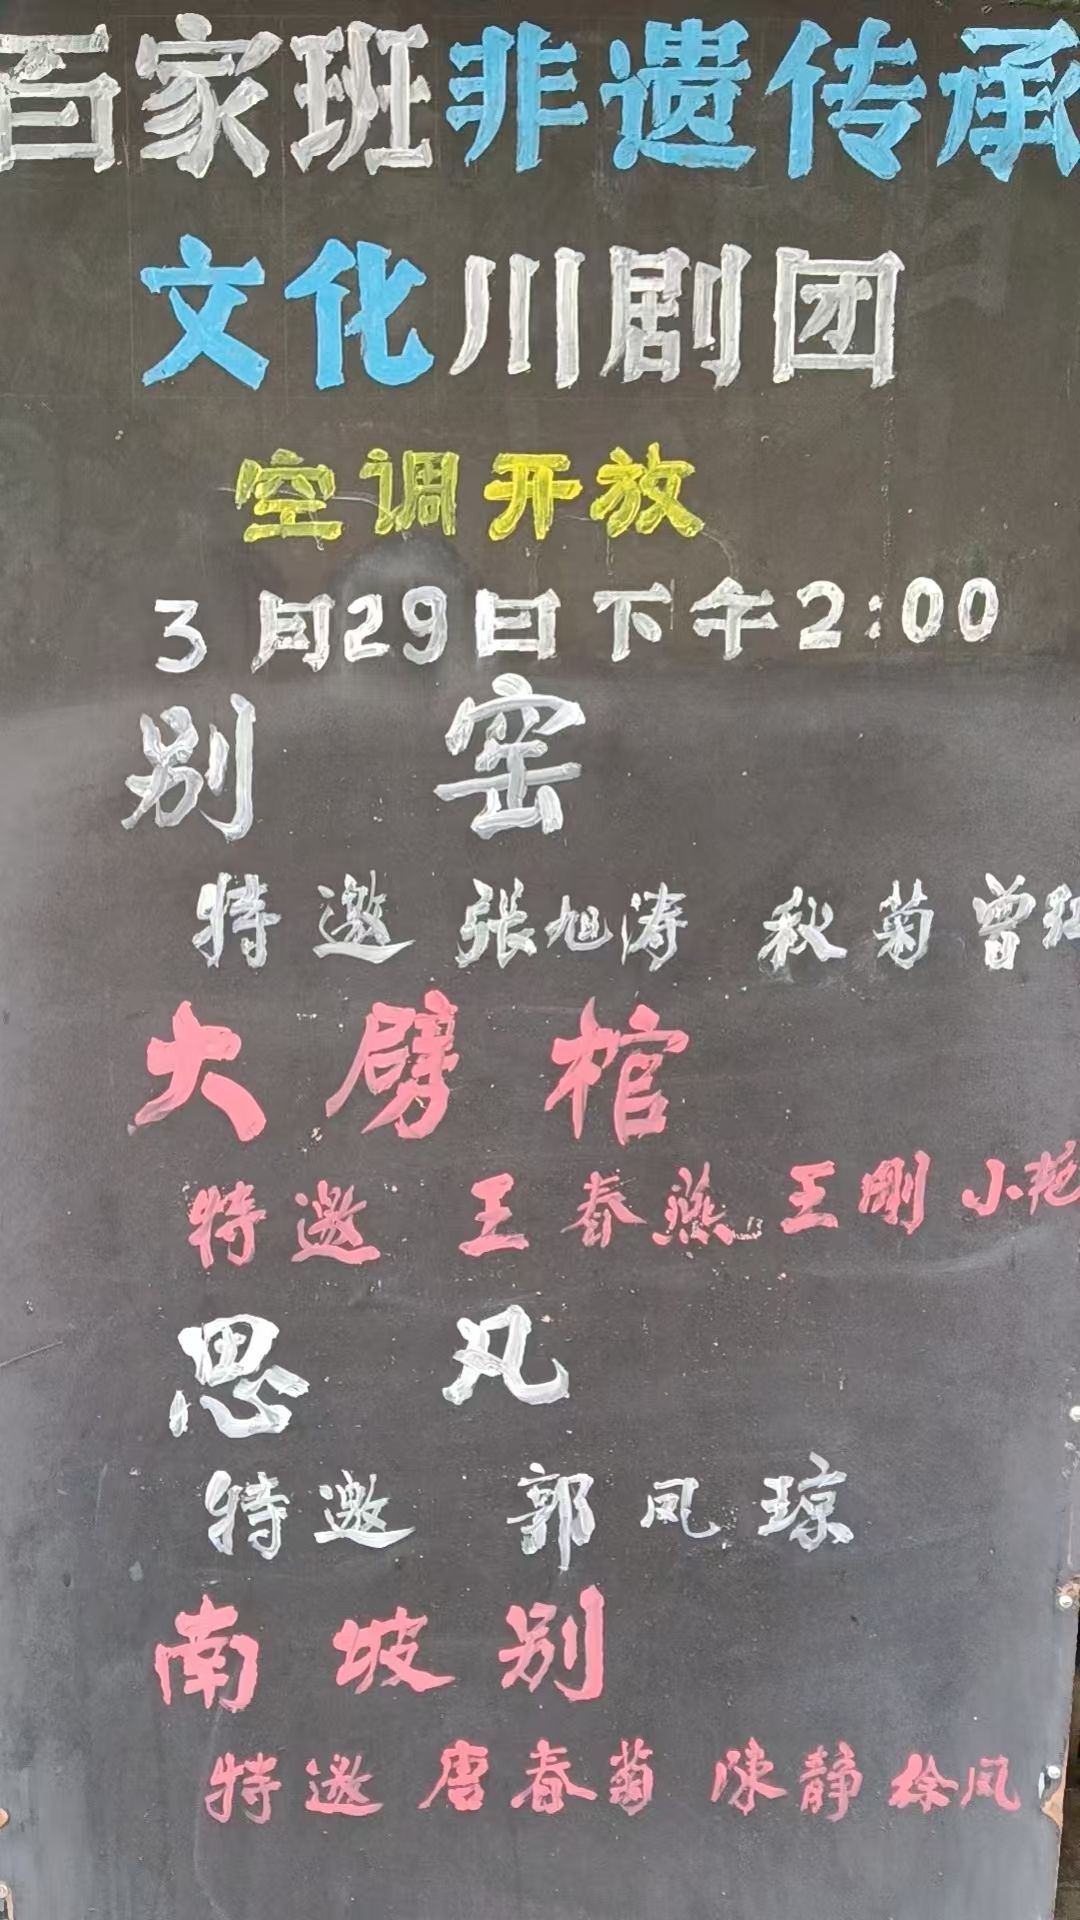 百家班非遗传承
文化川剧团
空调开放
3月29日下午2:00
别窑
特邀 张旭涛 秋菊 曾
大劈棺
特邀 王春燕 王刚 小艳
思凡
特邀 郭凤琼
南坡别
特邀 唐春菊 陈静 徐凤